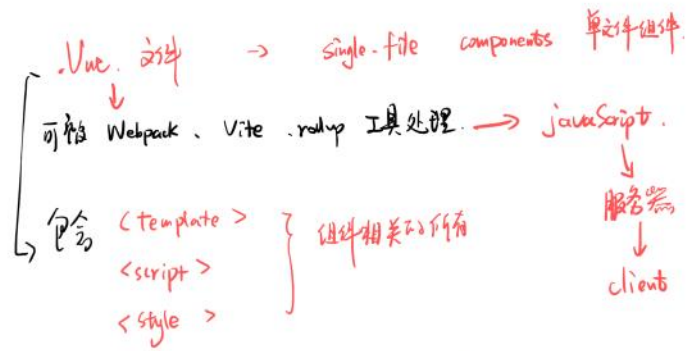 .Vue. 文件 → single-file components 单文件组件.
可被 Webpack、Vite .rollup 工具处理. → javaScript.
服务器
client
包含 <template> 组件相关的所有
<script>
<style>